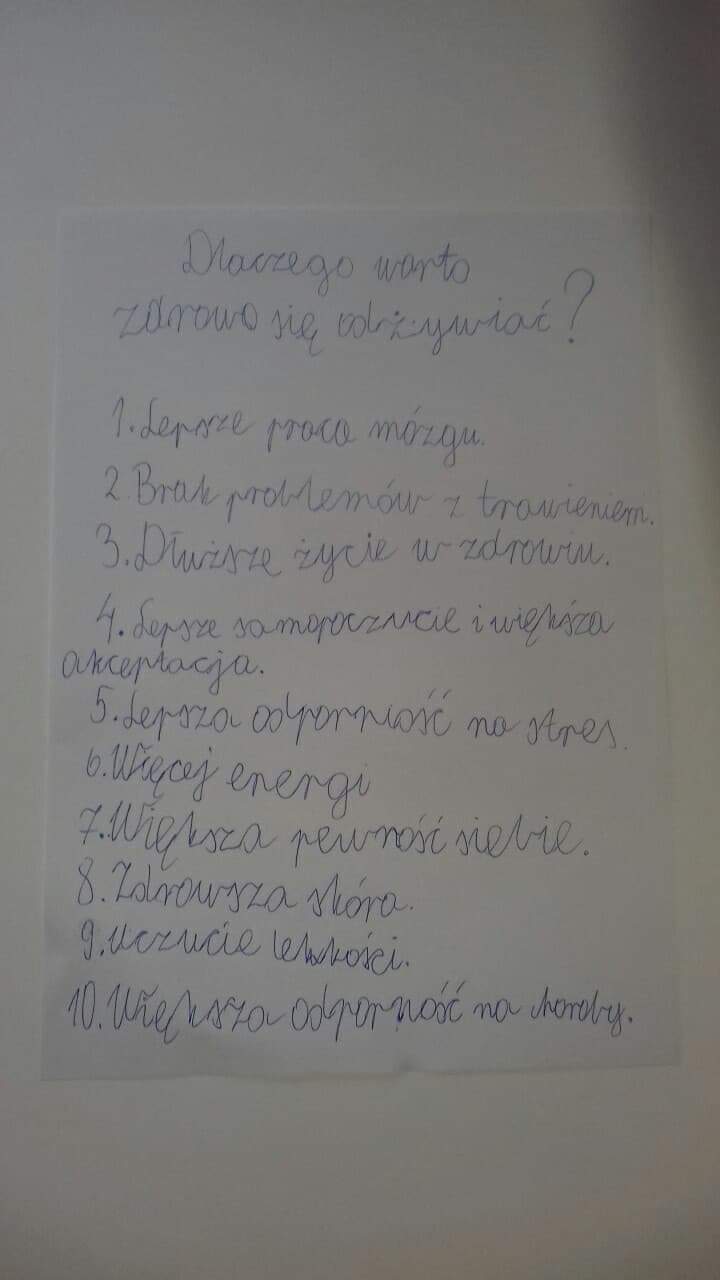 Dlaczego warto
zdrowo się odżywiać?
1. Lepsze praca mózgu.
2. Brak problemów z trawieniem.
3. Dłuższe życie w zdrowiu.
4. Lepsze samopoczucie i większa
akceptacja.
5. Lepsza odporność na stres.
6. Więcej energi
7. Większa pewność siebie.
8. Zdrowsza skóra.
9. Uczucie lekkości.
10. Większa odporność na choroby.